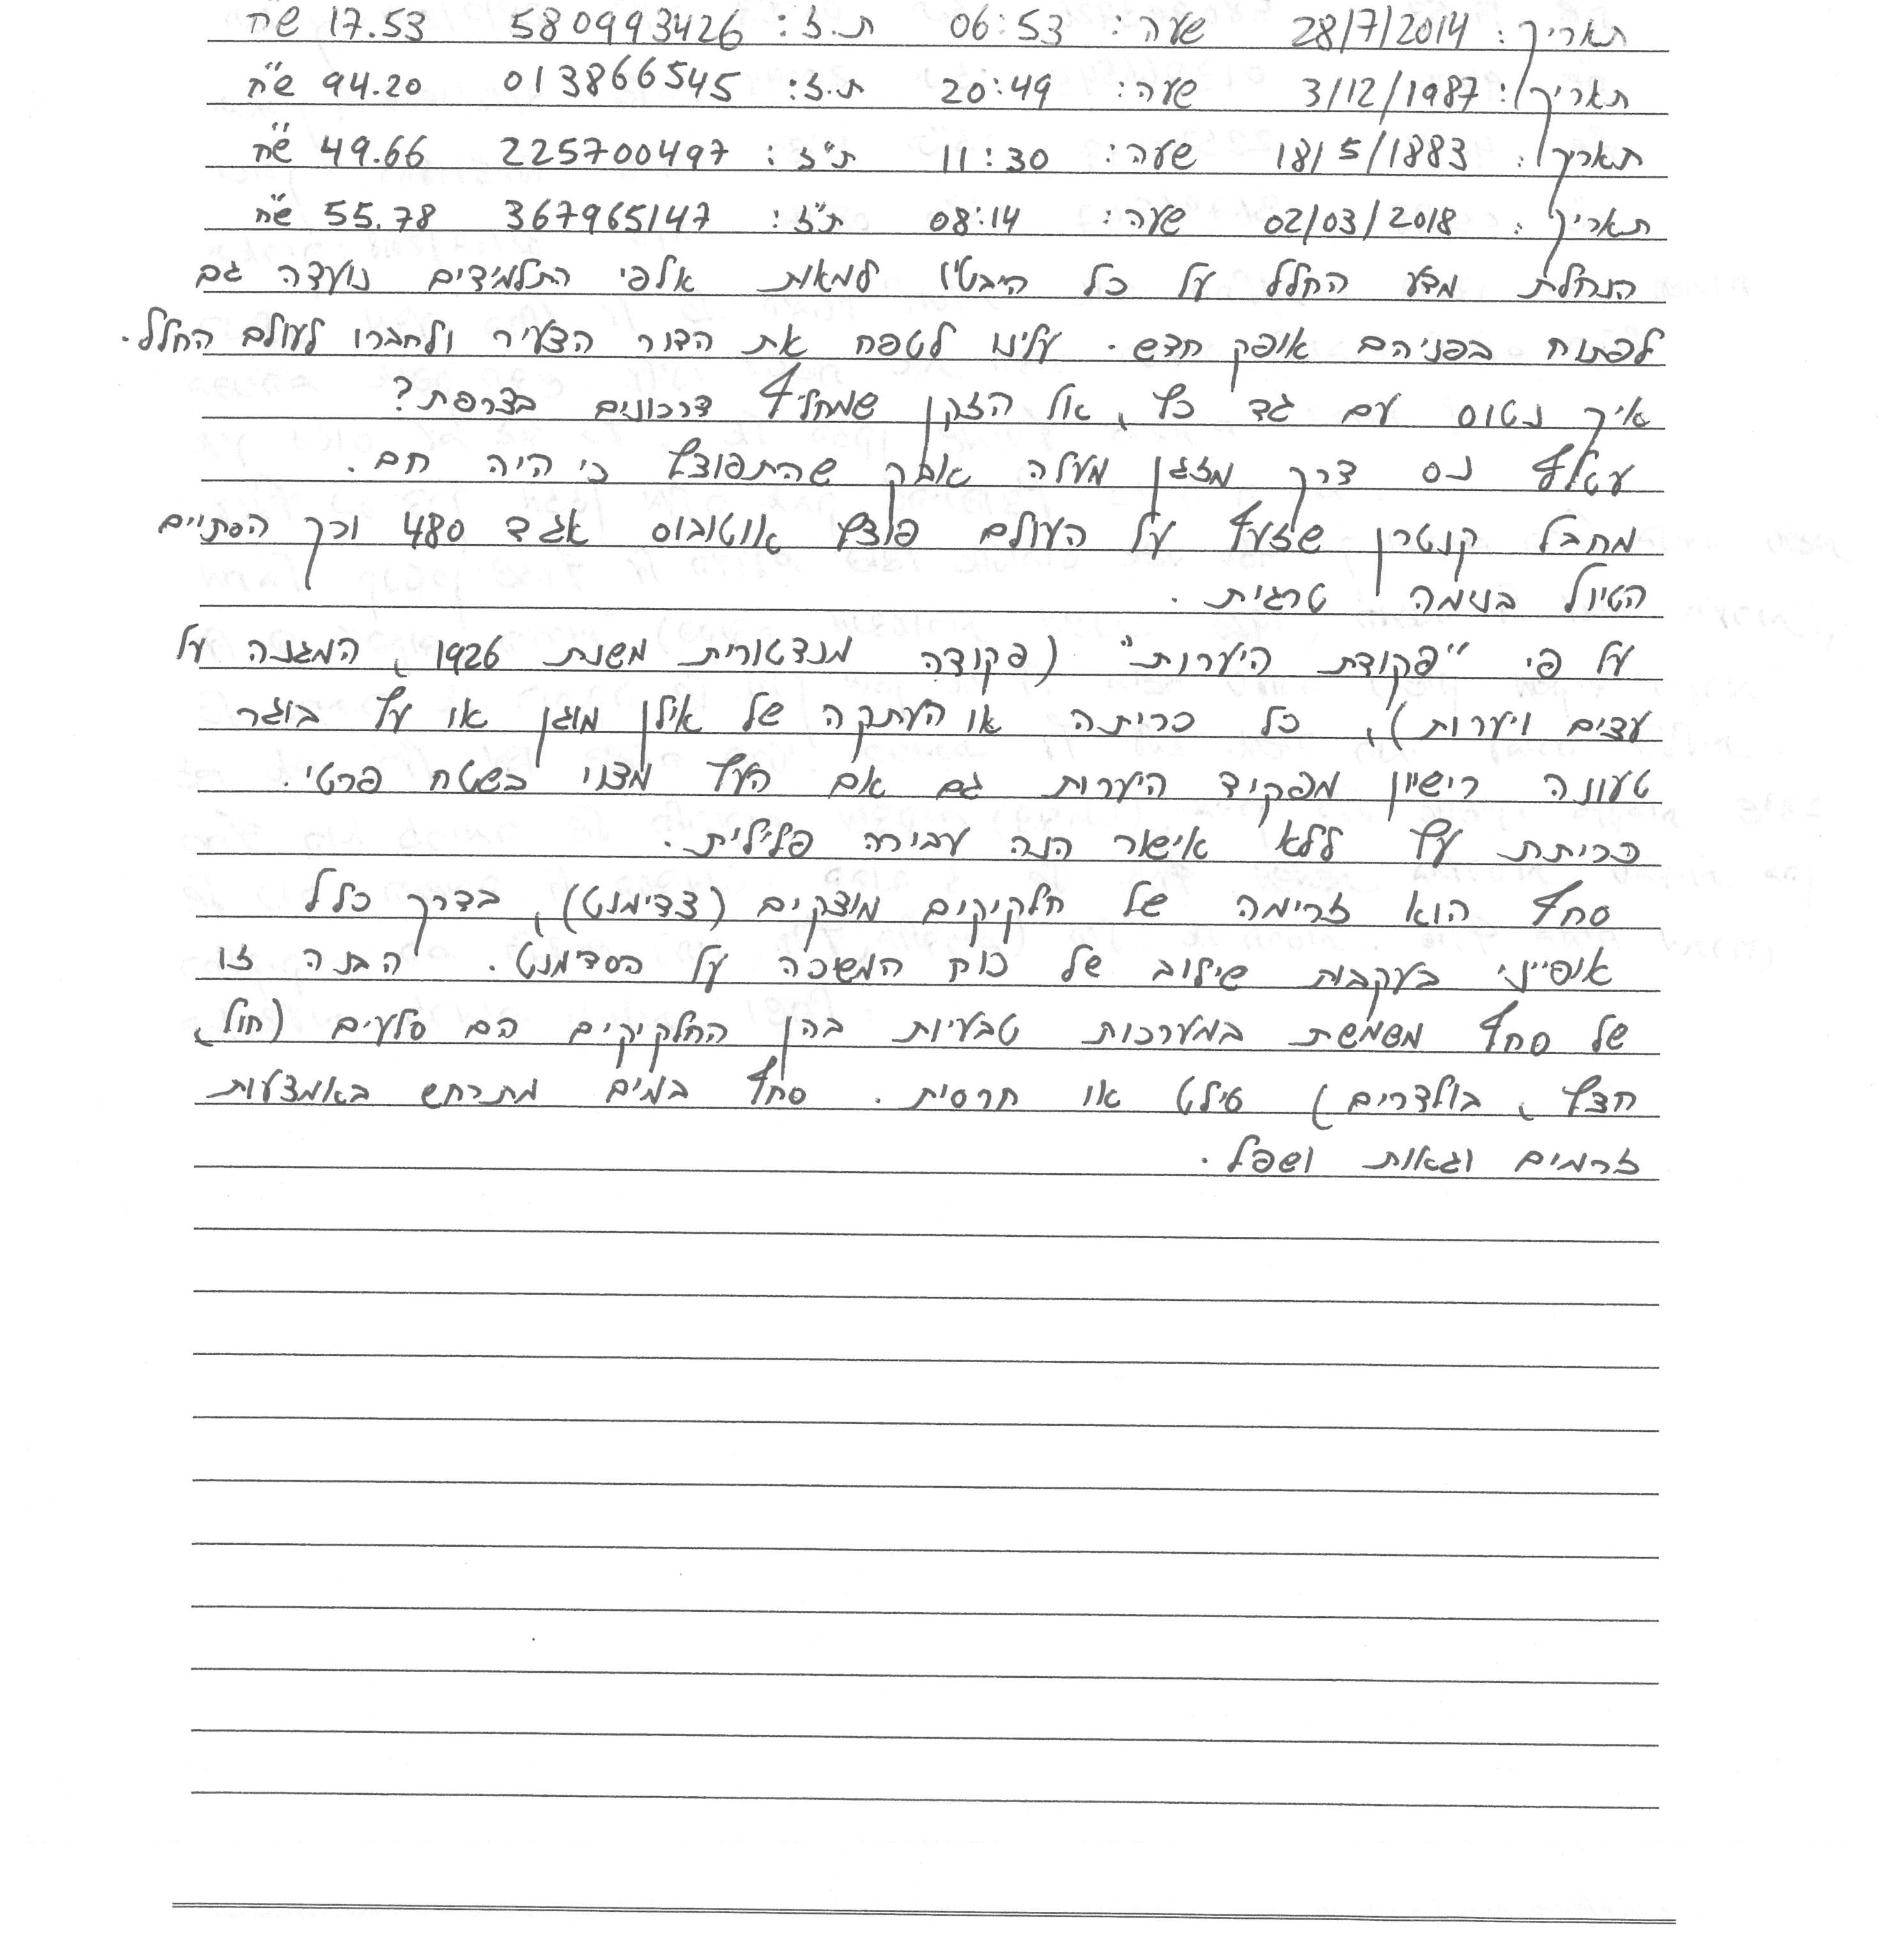 תאריך: 28/7/2014 שעה: 06:53 ת.ז: 580993426 17.53 ש"ח
תאריך: 3/12/1987 שעה: 20:49 ת.ז: 013866545 94.20 ש"ח
תאריך: 18/5/1883 שעה: 11:30 ת"ז: 225700497 49.66 ש"ח
תאריך: 02/03/2018 שעה: 08:14 ת"ז: 367965147 55.78 ש"ח
הנחלת מדע החלל על כל היבטיו למאות אלפי התלמידים נועדה גם
לפתוח בפניהם אופק חדש. עלינו לטפח את הדור הצעיר ולחברו לעולם החלל.
איך נטוס עם גד כץ, אל הזקן שמחליף דרכונים בצרפת?
עטלף נס דרך מזגן מעלה אבק שהתפוצץ כי היה חם.
מחבל קנטרן שזעף על העולם פוצץ אוטובוס אגד 480 וכך הסתיים
הטיול בנימה טרגית.
על פי "פקודת היערות" (פקודה מנדטורית משנת 1926, המגנה על
עצים ויערות), כל כריתה או העתקה של אילן מוגן או עץ בוגר
טעונה רישיון מפקיד היערות גם אם העץ מצוי בשטח פרטי.
כריתת עץ ללא אישור הנה עבירה פלילית.
סחף הוא זרימה של חלקיקים מוצקים (צדימנט), בדרך כלל
אופייני בעקבות שילוב של כוח המשכה על הסדימנט. הבנה זו
של סחף משמשת במערכות טבעיות בהן החלקיקים הם סלעים (חול,
חצץ, בולדרים) סילט או חרסית. סחף במים מתרחש באמצעות
זרמים וגאות ושפל.